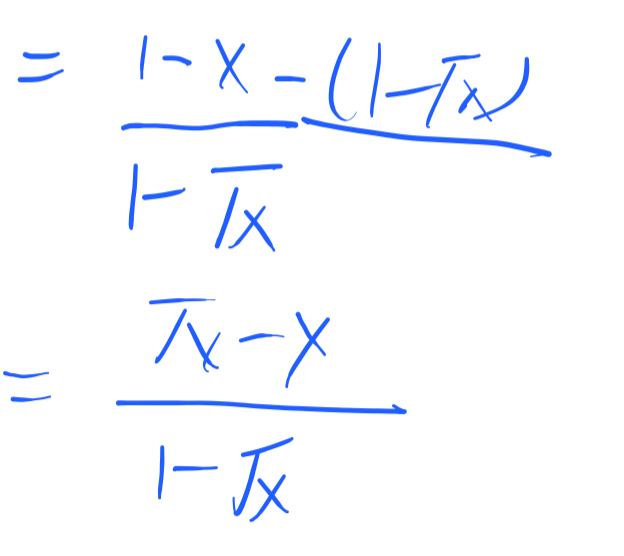 = \frac{1 - x - (1 - \sqrt{x})}{1 - \sqrt{x}}
= \frac{\sqrt{x} - x}{1 - \sqrt{x}}